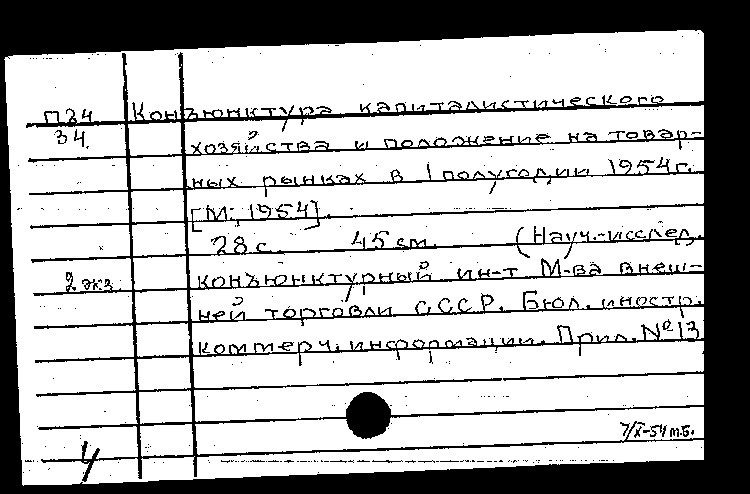 П24 Конъюнктура капиталистического
34. хозяйства и положение на товар-
ных рынках в I полугодии 1954 г.
[М., 1954].
28 с. 45 см. (Науч.-исслед.
2 экз. конъюнктурный ин-т М-ва внеш-
ней торговли СССР. Бюл. иностр.
коммерч. информации. Прил. № 13
7/X-54 т.б.